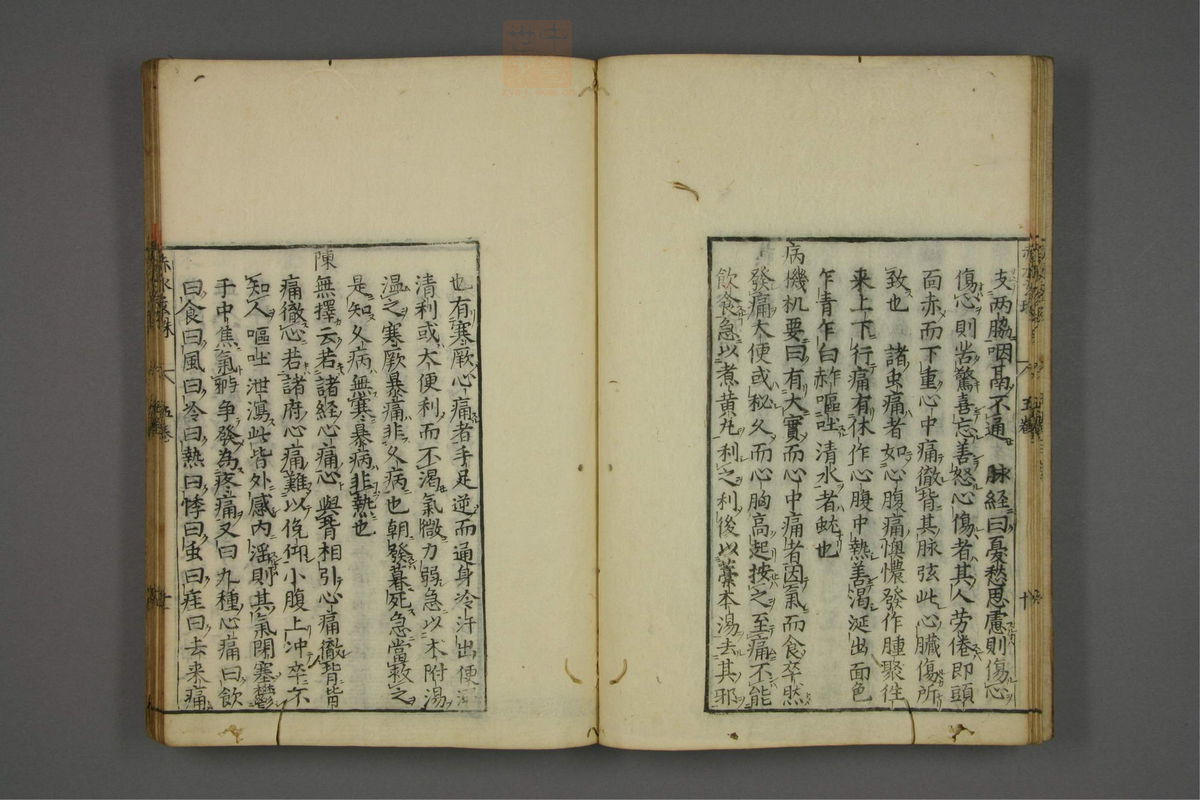 支两脇咽鬲不通　脉経曰憂愁思慮則傷心
傷心則苦驚喜忘善怒心傷者其人労倦即頭
面赤而下重心中痛徹背其脉弦此心臓傷所
致也　諸虫痛者如心腹痛懊憹發作腫聚徃
来上下行痛有休作心腹中熱善渇涎出面色
乍青乍白赤嘔吐清水者蚘也
病機机要曰有大實而心中痛者因氣而食卒然
發痛大便或秘久而心胸高起按之至痛不能
飲食急以煮黄丸利之利後以藁本湯去其邪
也有寒厥心痛者手足逆而通身冷汗出便溺
清利或大便利而不渇氣微力弱急以术附湯
温之寒厥暴痛非久病也朝發暮死急當救之
是知久病無寒暴病非熱也
陳無擇云若諸経心痛心與背相引心痛徹背皆
痛徹心若諸府心痛難以俛仰小腹上冲卒不
知人嘔吐泄瀉此皆外感内滛則其氣閉塞鬱
手中焦氣與争發為疼痛又曰九種心痛曰飲
曰食曰風曰冷曰熱曰悸曰虫曰疰曰去来痛
五巻
十
五巻